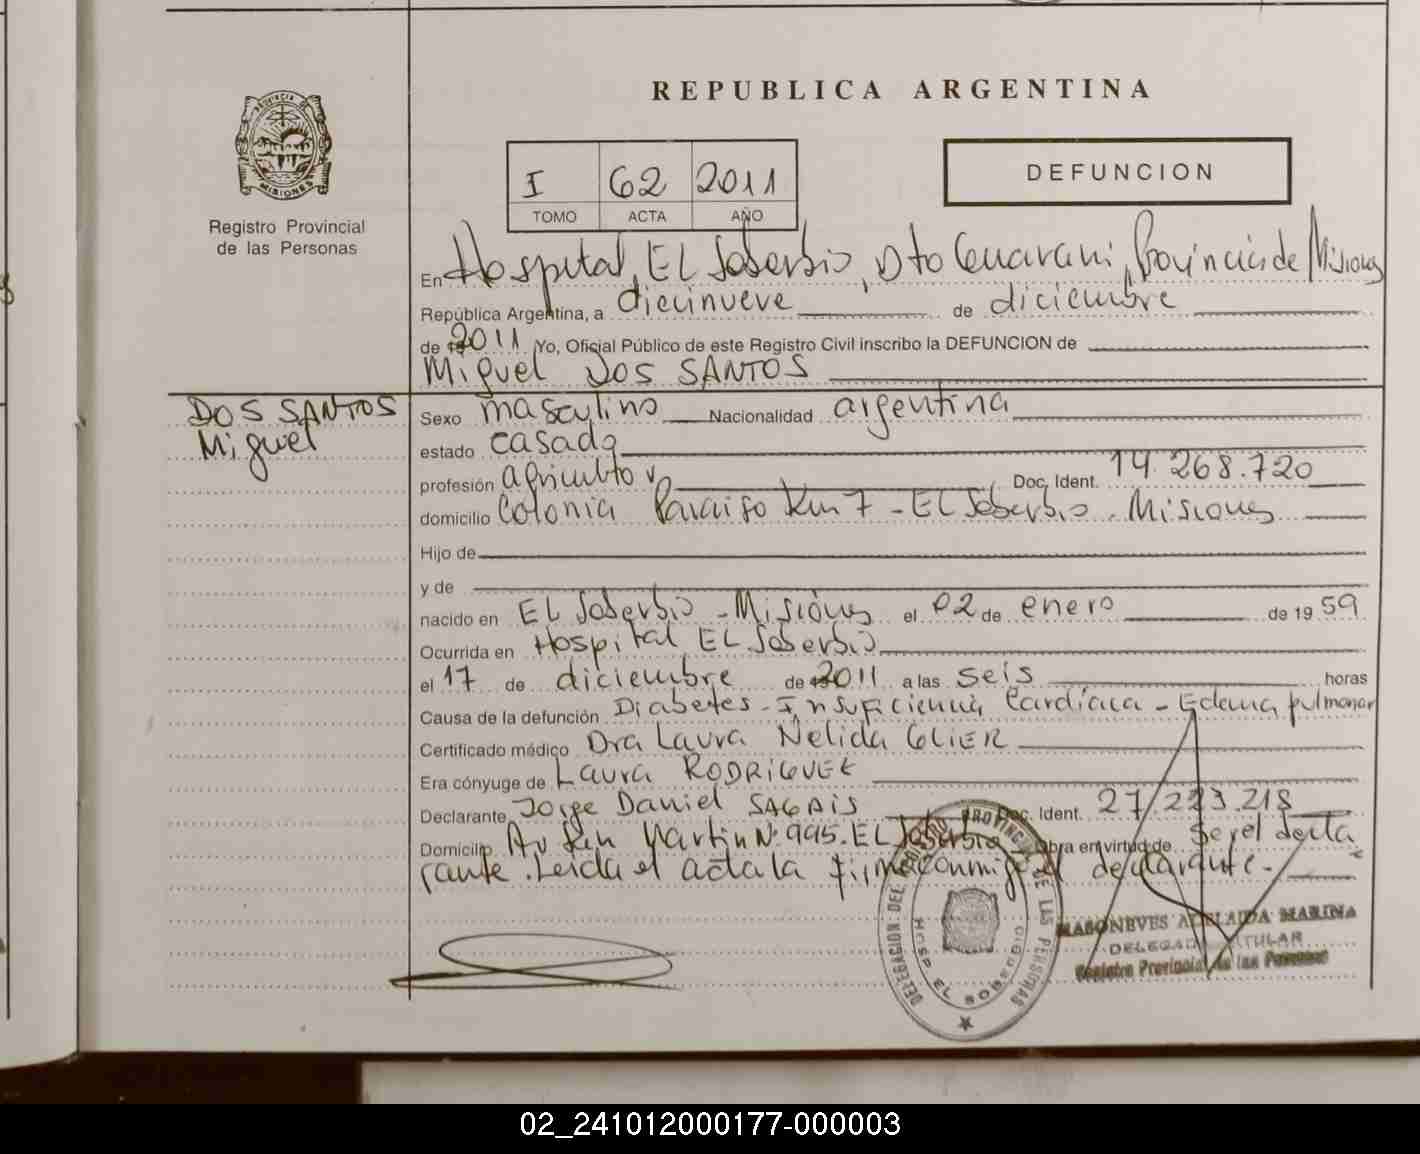 REPUBLICA ARGENTINA
PROVINCIA DE
MISIONES
Registro Provincial
de las Personas
DEFUNCION
I 62 2011
TOMO ACTA AÑO
En Hospital, EL Soberbio, Dto Guarani, Provincia de Misiones
República Argentina, a diecinueve de diciembre
de 2011 Yo, Oficial Público de este Registro Civil inscribo la DEFUNCION de
Miguel DOS SANTOS
DOS SANTOS
Miguel
Sexo masculino Nacionalidad argentina
estado casado
profesión agricultor Doc. Ident. 14.268.720
domicilio Colonia Paraiso Km 7 - EL Soberbio - Misiones
Hijo de
y de
nacido en EL Soberbio - Misiones el 02 de enero de 19 59
Ocurrida en Hospital EL Soberbio
el 17 de diciembre de 2011 a las seis horas
Causa de la defunción Diabetes - Insuficiencia Cardíaca - Edema pulmonar
Certificado médico Dra Laura Nelida GLIER
Era cónyuge de Laura RODRIGUEZ
Declarante Jorge Daniel Doc. Ident. 27/223.218
Domicilio Av San Martin Nº 995. EL Soberbio Obra en virtud de ser el decla
rante. Leida el acta la firma conmigo el declarante.-
DELEGACION DEL REGISTRO PROVINCIAL DE LAS PERSONAS
HOSP. EL SOBERBIO
MASONEVES ADELAIDA MARINA
DELEGADA TITULAR
Registro Provincial de las Personas
02_241012000177-000003